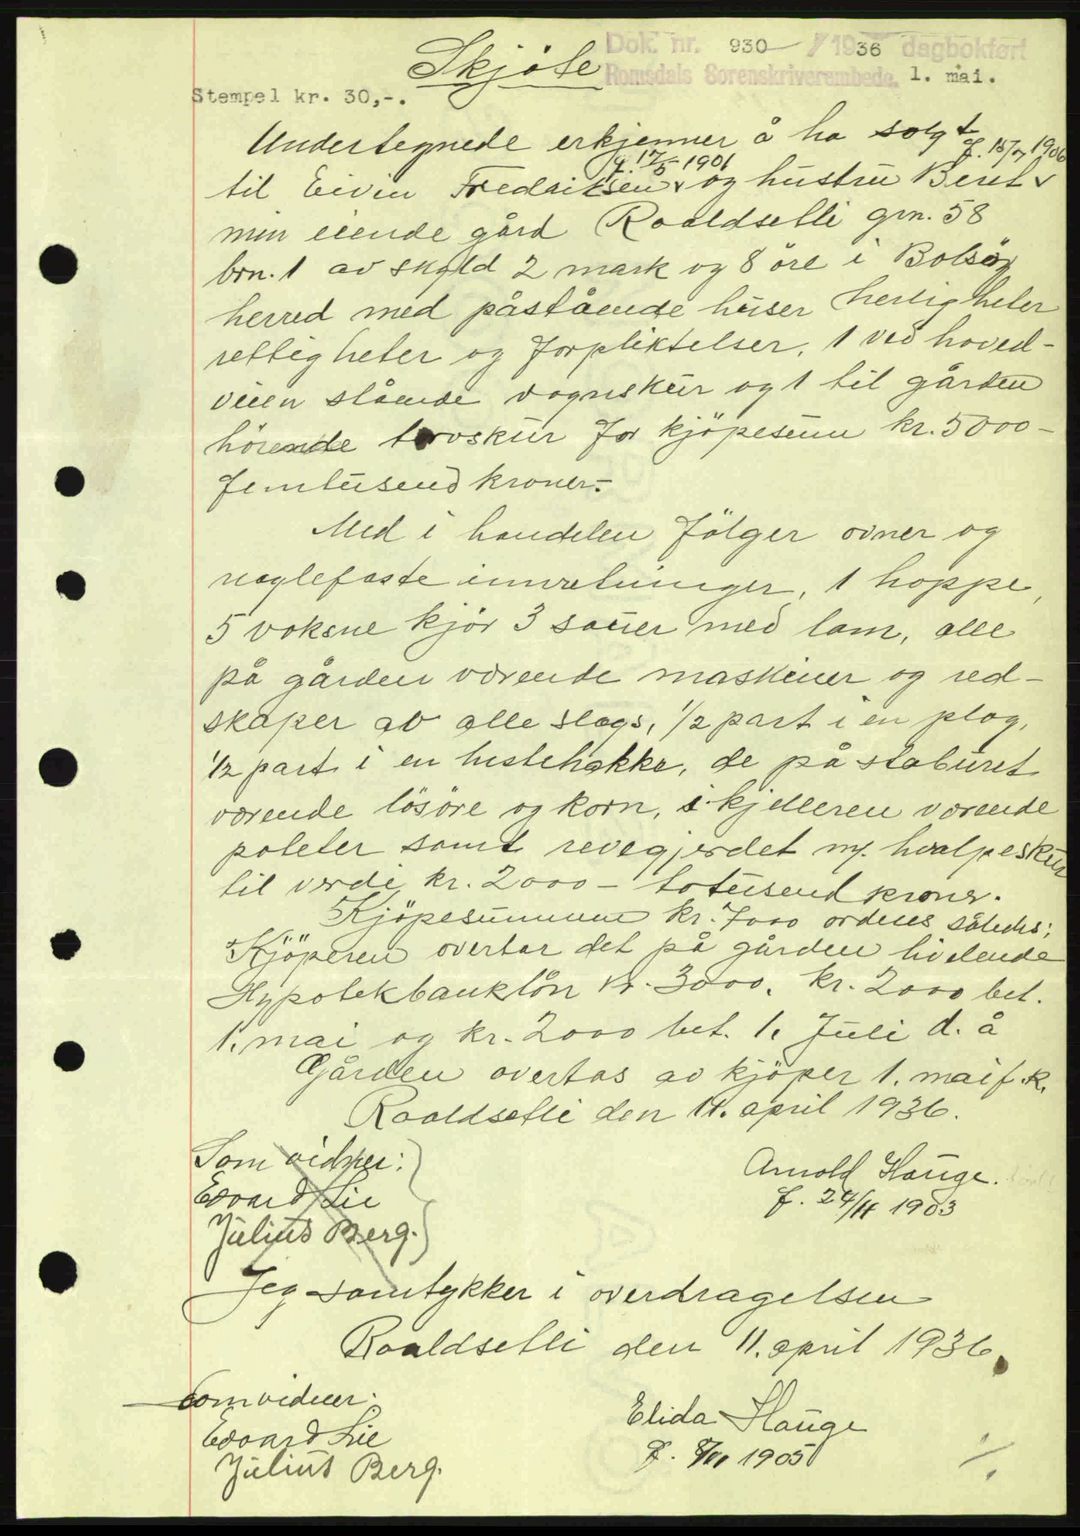 Skjöte
Dok. nr. 930 / 1936 dagbokført
Romsdals Sorenskriverembede. 1. mai.
Stempel kr. 30,-.
Undertegnede erkjenner å ha solgt
f. 17/5 1901 f. 15/7 1906
til Eivin Fredriksen v og hustru Beret v
min eiende gård Roaldsetli grn. 58
brn. 1 av skyld 2 mark og 8 öre i Bolsöy
herred med påstående huser herligheter
rettigheter og forpliktelser, 1 ved hoved-
veien stående vognskur og 1 til gården
hörende torvskur for kjöpesum kr. 5000-
femtusend kroner.-
Med i handelen fölger ovner og
naglefaste innretninger, 1 hoppe,
5 voksne kjör 3 sauer med lam, alle
på gården værende maskiner og red-
skaper av alle slags, 1/2 part i en plog,
1/2 part i en hestehakke, de på staburet
værende lösöre og korn, i kjelleren værende
poteter samt revegjerdet m/. hvalpeskur
til verdi kr. 2000 - totusend kroner.
Kjöpesummen kr. 7000 ordnes således:
Kjöperen overtar det på gården hvilende
Hypotekbanklån kr. 3000, kr. 2000 bet.
1. mai og kr. 2000 bet. 1. Juli d. å
Gården overtas av kjöper 1. mai f.k.
Roaldsetli den 11. april 1936.
Som vidner:
Arnold Hauge.
Edvard Lie
f. 24/11 1903
Julius Berg.
Jeg samtykker i overdragelsen
Roaldsetli den 11. april 1936.
Som vidner:
Elida Hauge
Edvard Lie
f. 8/11 1905
Julius Berg.